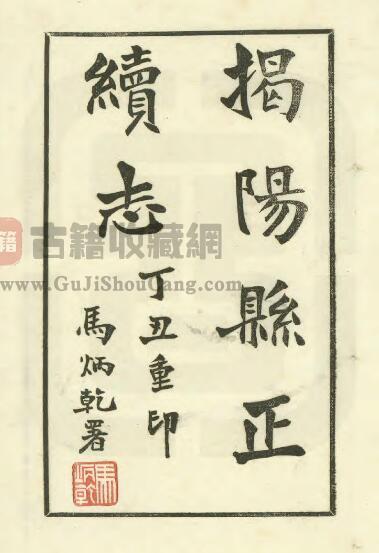 揭陽縣正
續志
丁丑重印
馬炳乾署
馬炳乾
籍 古籍收藏網
www.GuJiShouCang.com